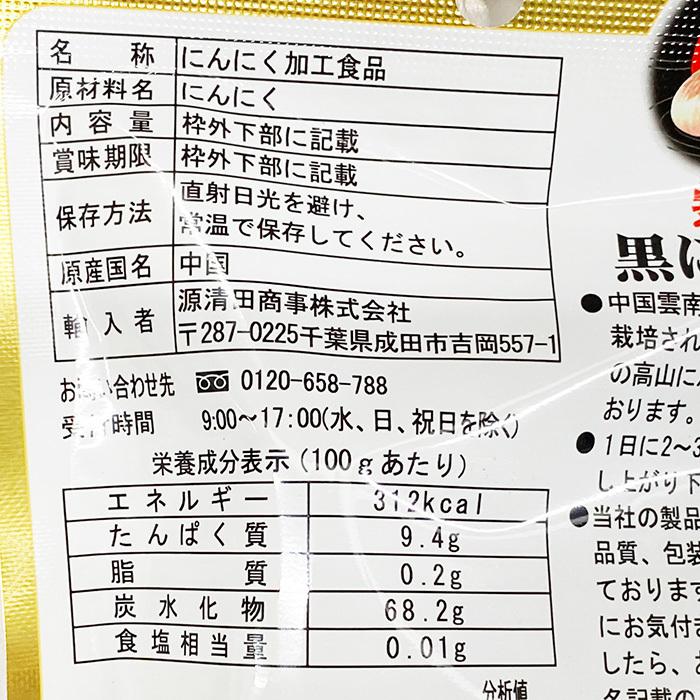 名称 にんにく加工食品
原材料名 にんにく
内容量 枠外下部に記載
賞味期限 枠外下部に記載
保存方法 直射日光を避け、
常温で保存してください。
原産国名 中国
輸入者 源清田商事株式会社
〒287-0225千葉県成田市吉岡557-1
お問い合わせ先 0120-658-788
受付時間 9:00〜17:00(水、日、祝日を除く)
栄養成分表示(100gあたり)
エネルギー 312kcal
たんぱく質 9.4g
脂質 0.2g
炭水化物 68.2g
食塩相当量 0.01g
分析値
黒に
●中国雲南
栽培され
の高山に
おります。
●1日に2〜3
し上がり下
●当社の製品
品質、包装
ております
にお気付き
したら、
名記載の